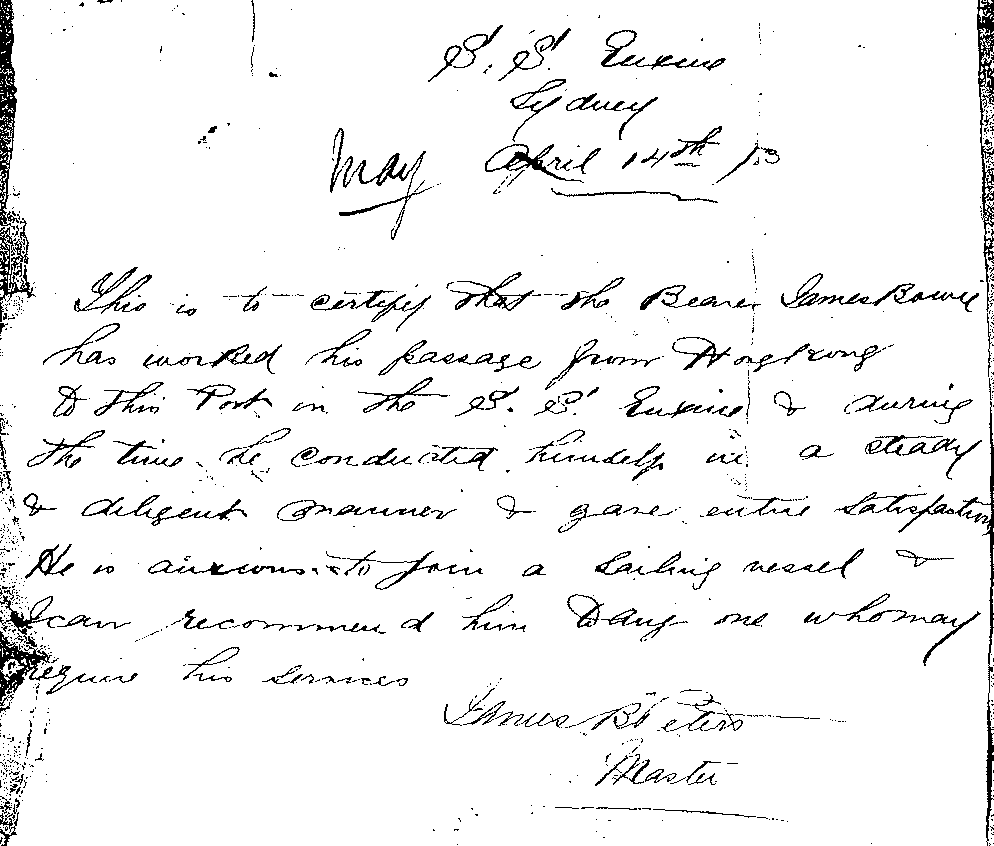 S. S. Euxine
Sydney
May April 14th /83
This is to certify that the Bearer James Bowie
has worked his passage from Hongkong
to this Port in the S. S. Euxine & during
the time he conducted himself in a steady
& diligent manner & gave entire satisfaction
He is anxious to join a sailing vessel &
I can recommend him to any one who may
require his services
James B Peters
Master